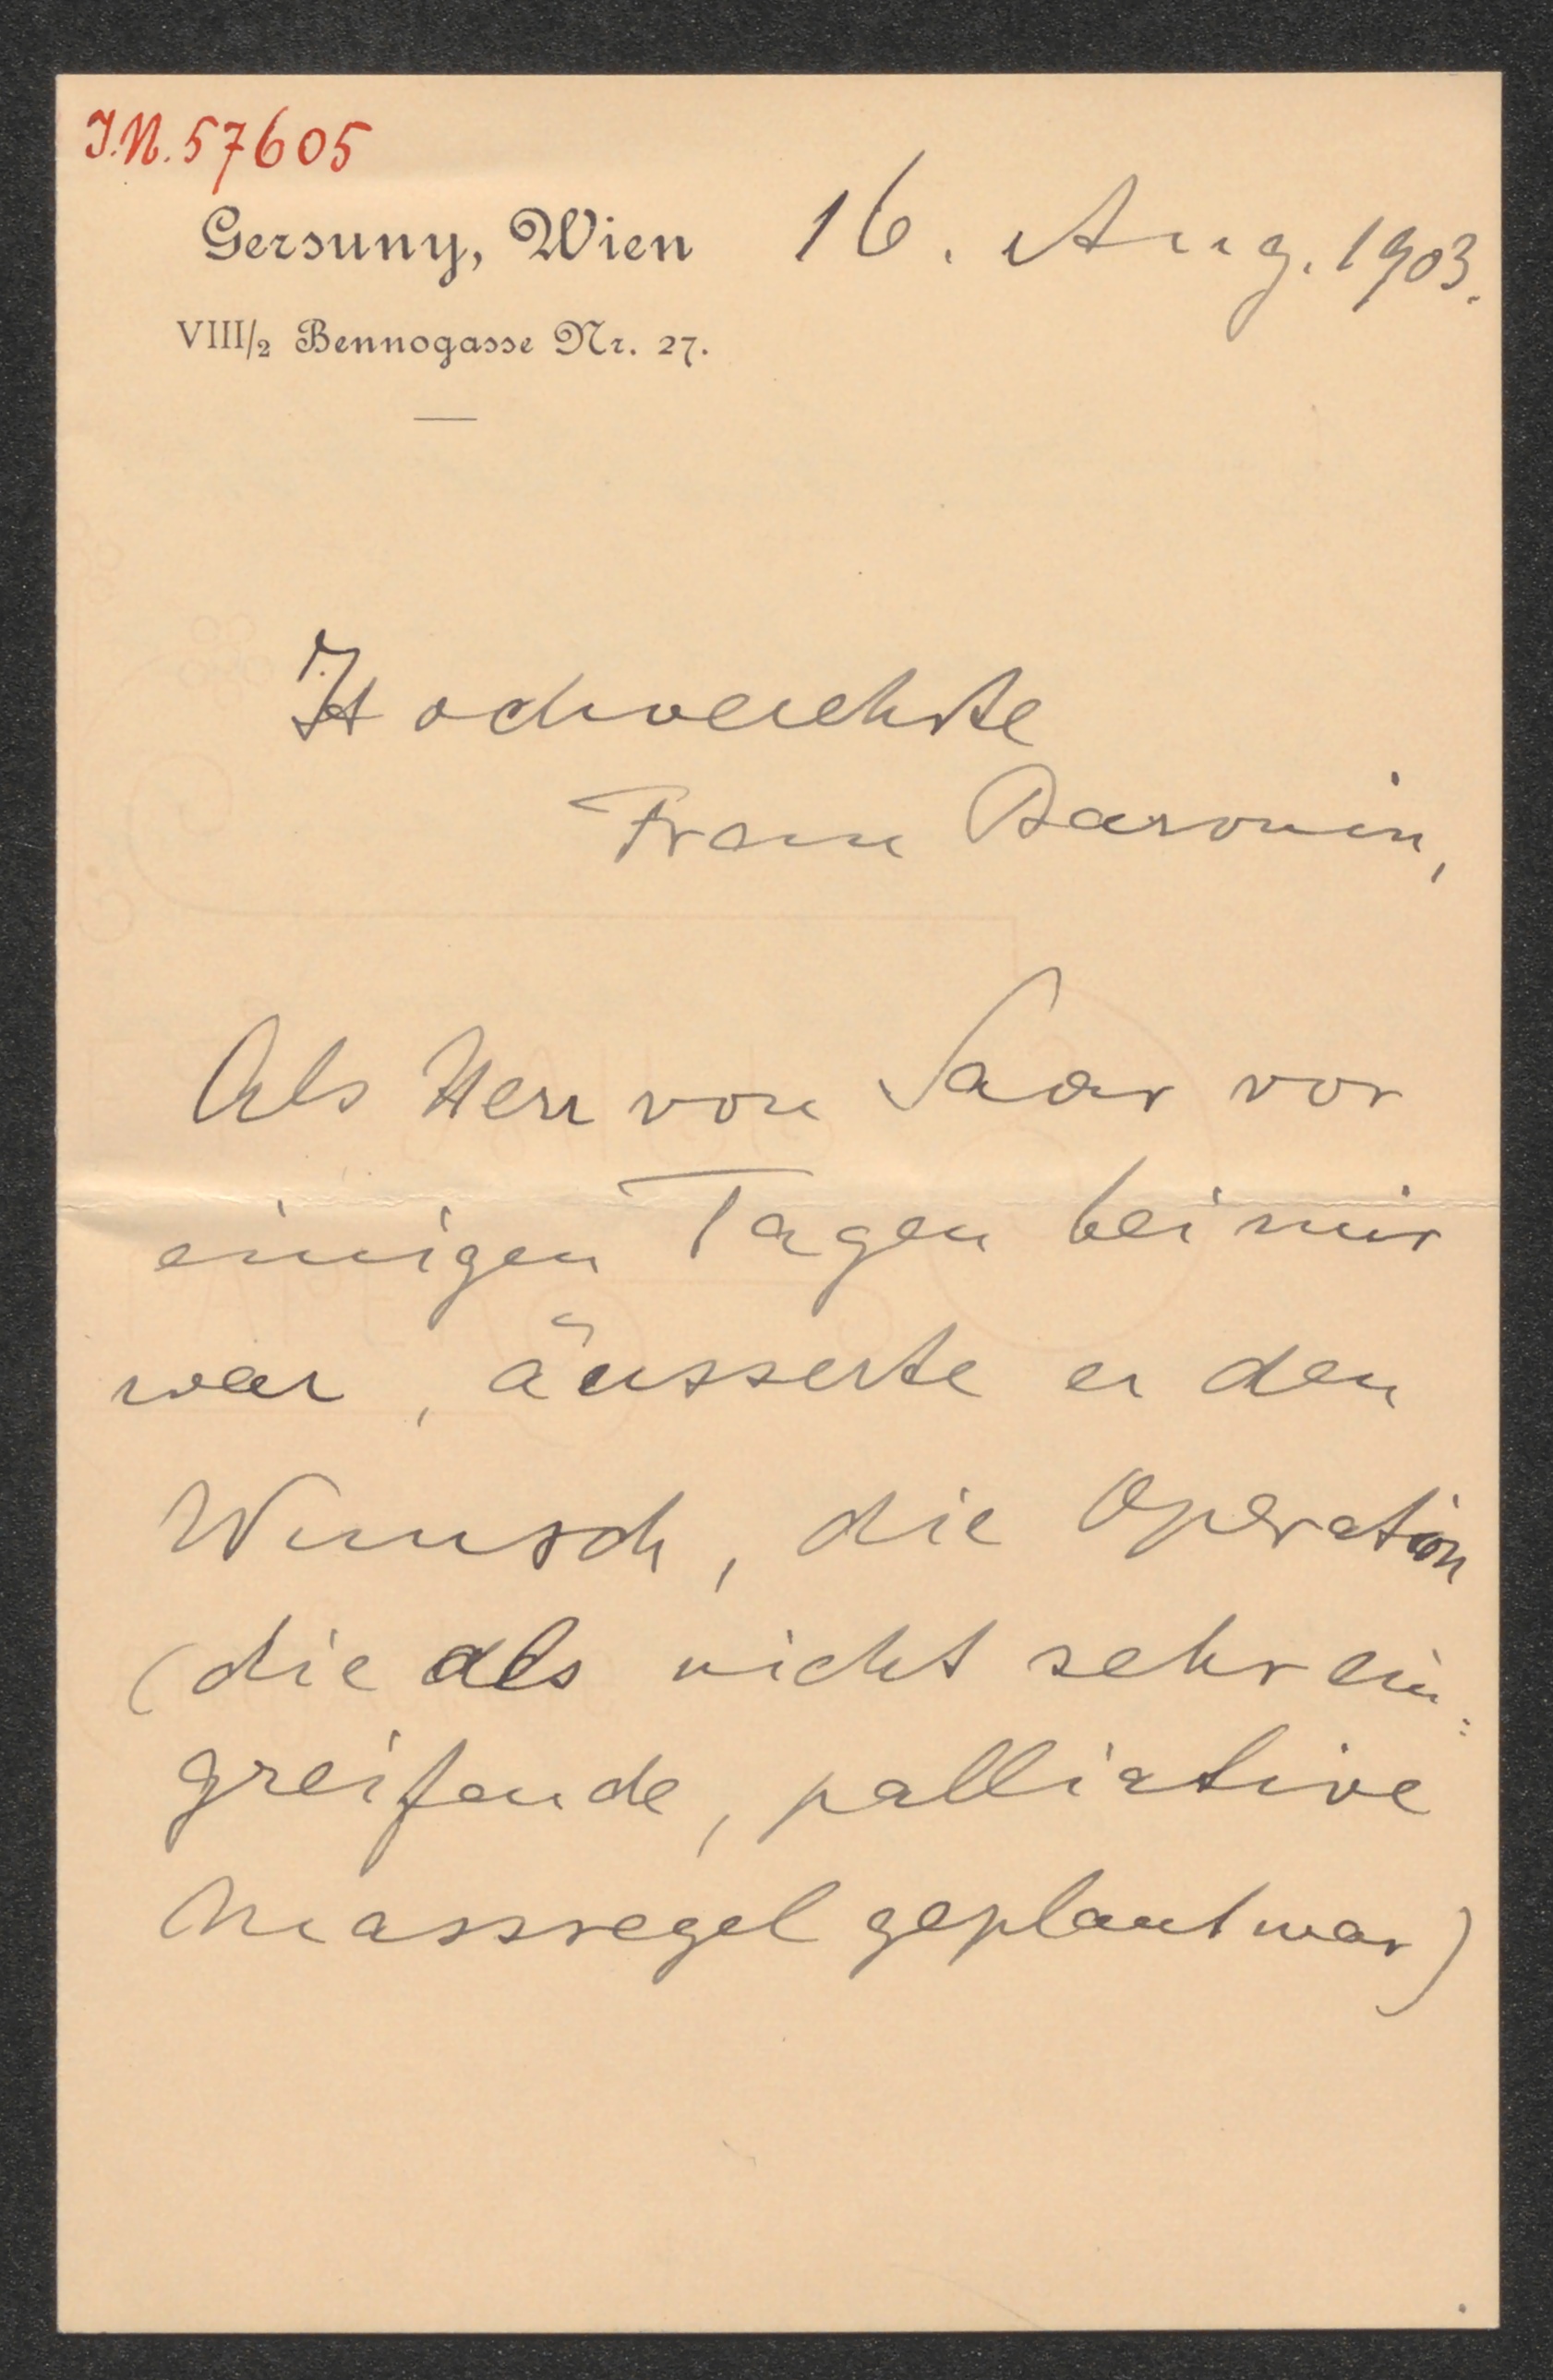 I.N. 57605
Gersuny, Wien
16. Aug. 1903.
VIII/2 Bennogasse Nr. 27.
Hochverehrte
Frau Baronin,
Als Herr von Saar vor
einigen Tagen bei mir
war, äusserte er den
Wunsch, die Operation
(die als nicht sehr ein=
greifende, palliative
Massregel geplant war)